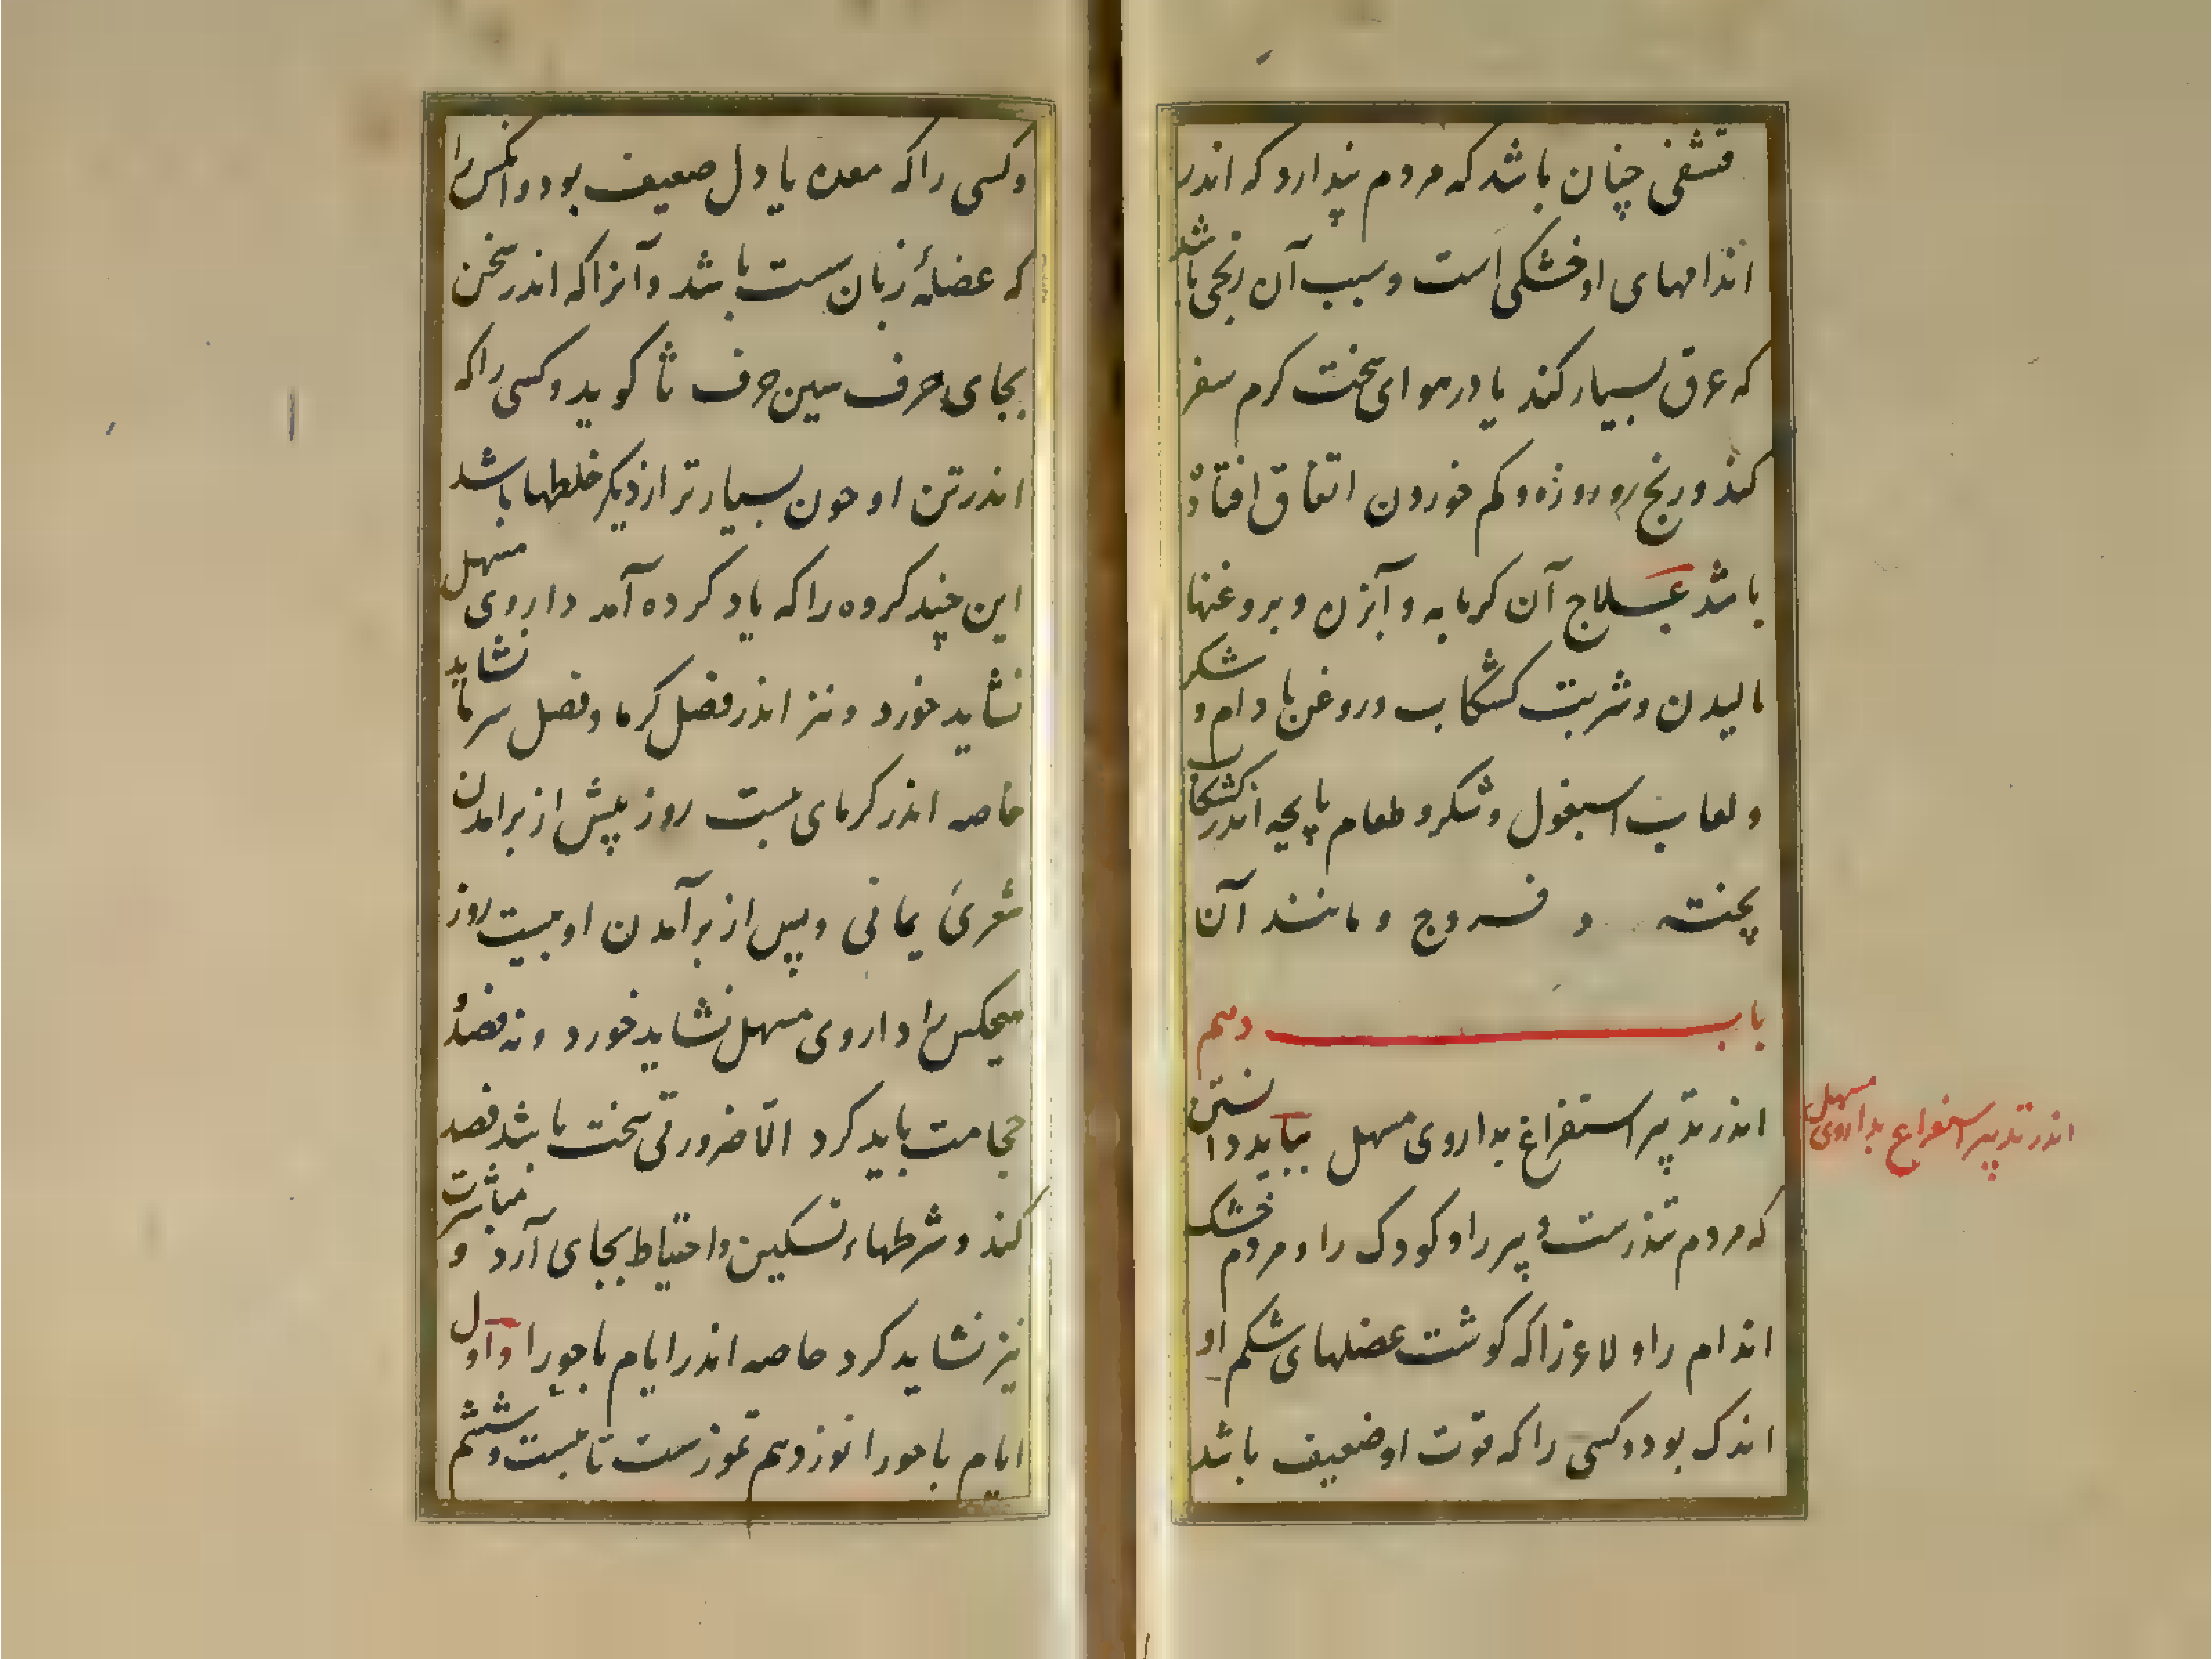 قشفی چنان باشد که مردم پندارد که اندر
اندامهای او خشکی است و سبب آن رنجی باشد
که عرق بسیار کند یا در هوای سخت کرم سفر
کند و رنج رو روزه و کم خوردن اتفاق افتاد
باشد علاج آن کرمابه و آبزن و بروغنها
مالیدن و شربت کشکاب و روغن بادام و شکر
و لعاب اسبغول و شکر و طعام پایچه اندر کشکاب
پخته و فروج و مانند آن
باب دهم
اندر تدبیر استفراغ بداروی مسهل
اندر تدبیر استفراغ بداروی مسهل بباید دانستن
که مردم تندرست و پیر را و کودک را و مردم خشک
اندام را و لاغر را که کوشت عضلهای شکم او
اندک بود و کسی را که قوت او ضعیف باشد
و کسی را که معده یا دل ضعیف بود و انکس را
که عضلهٔ زبان سست باشد و آنرا که اندر سخن
بجای حرف سین حرف ثا کوید و کسی را که
اندر تن او خون بسیارتر از دیکر خلطها باشد
این چند کروه را که یاد کرده آمد داروی مسهل
نشاید خورد و نیز اندر فصل کرما و فصل سرما نشاید
خاصه اندر کرمای بیست روز پیش از برامدن
شعریَ یمانی و پس از برآمدن او بیست روز
هیچکس را داروی مسهل نشاید خورد و نه فصد و
حجامت باید کرد الّا ضرورتی سخت باشد فصد
کند و شرطهاء تسکین و احتیاط بجای آرد و مباشرت
نیز نشاید کرد خاصه اندر ایام باحورا و اول
ایام باحورا نوزدهم تموزست تا بیست و ششم